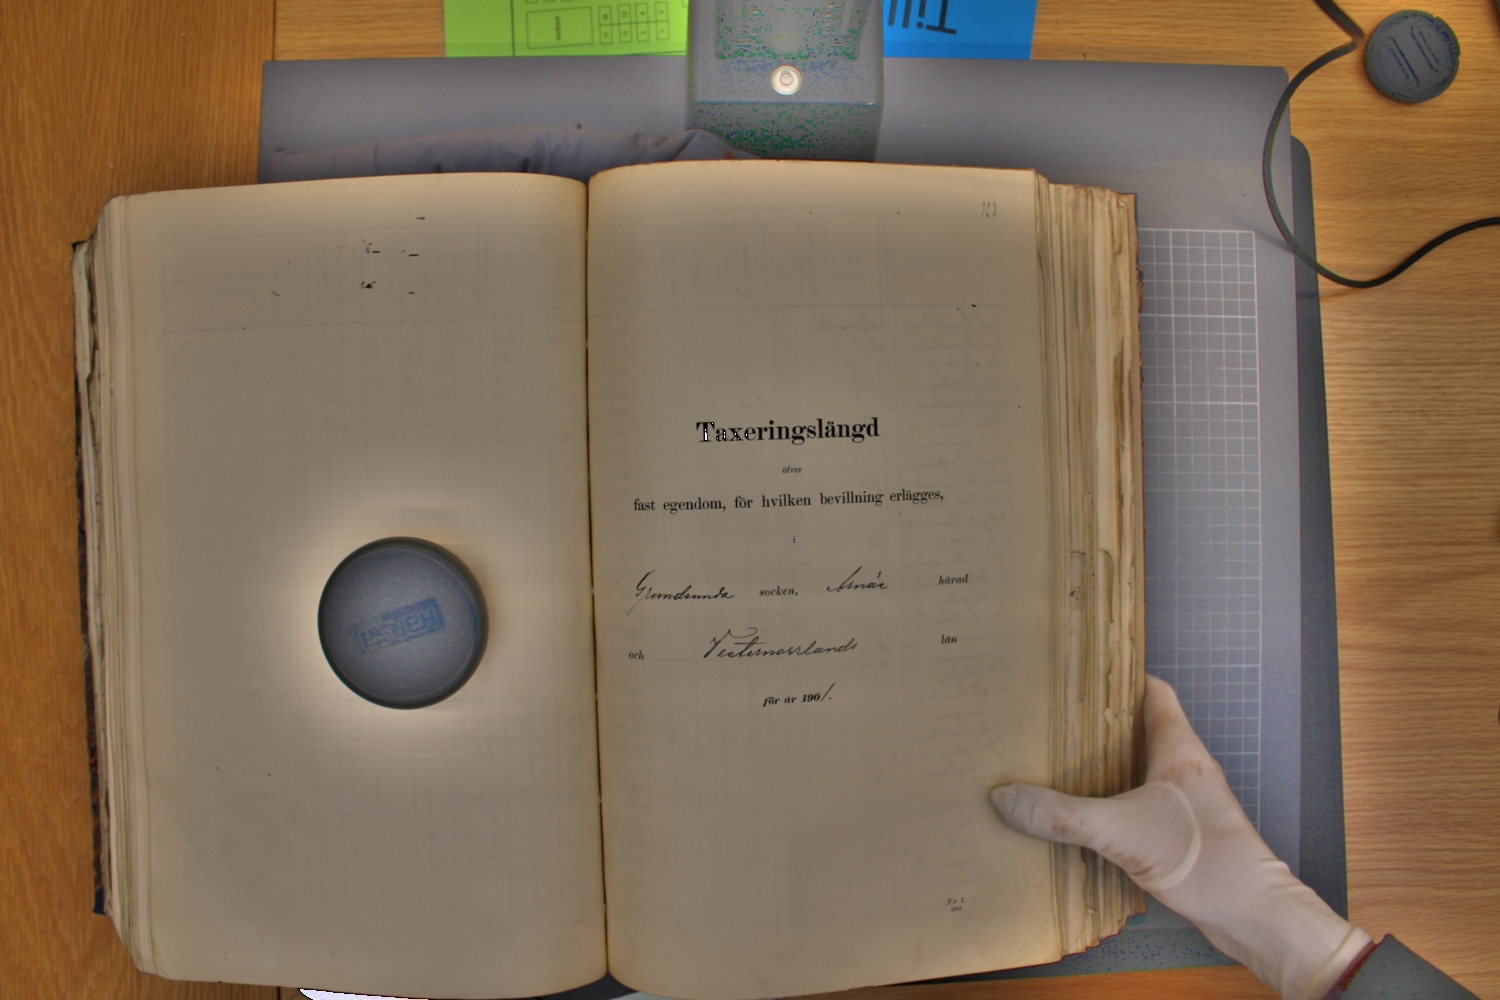 Till
Taxeringslängd
öfver
fast egendom, för hvilken bevillning erlägges,
i
Grundsunda socken, Arnäs härad
och Vesternorrlands län
för år 1901.
No 1.